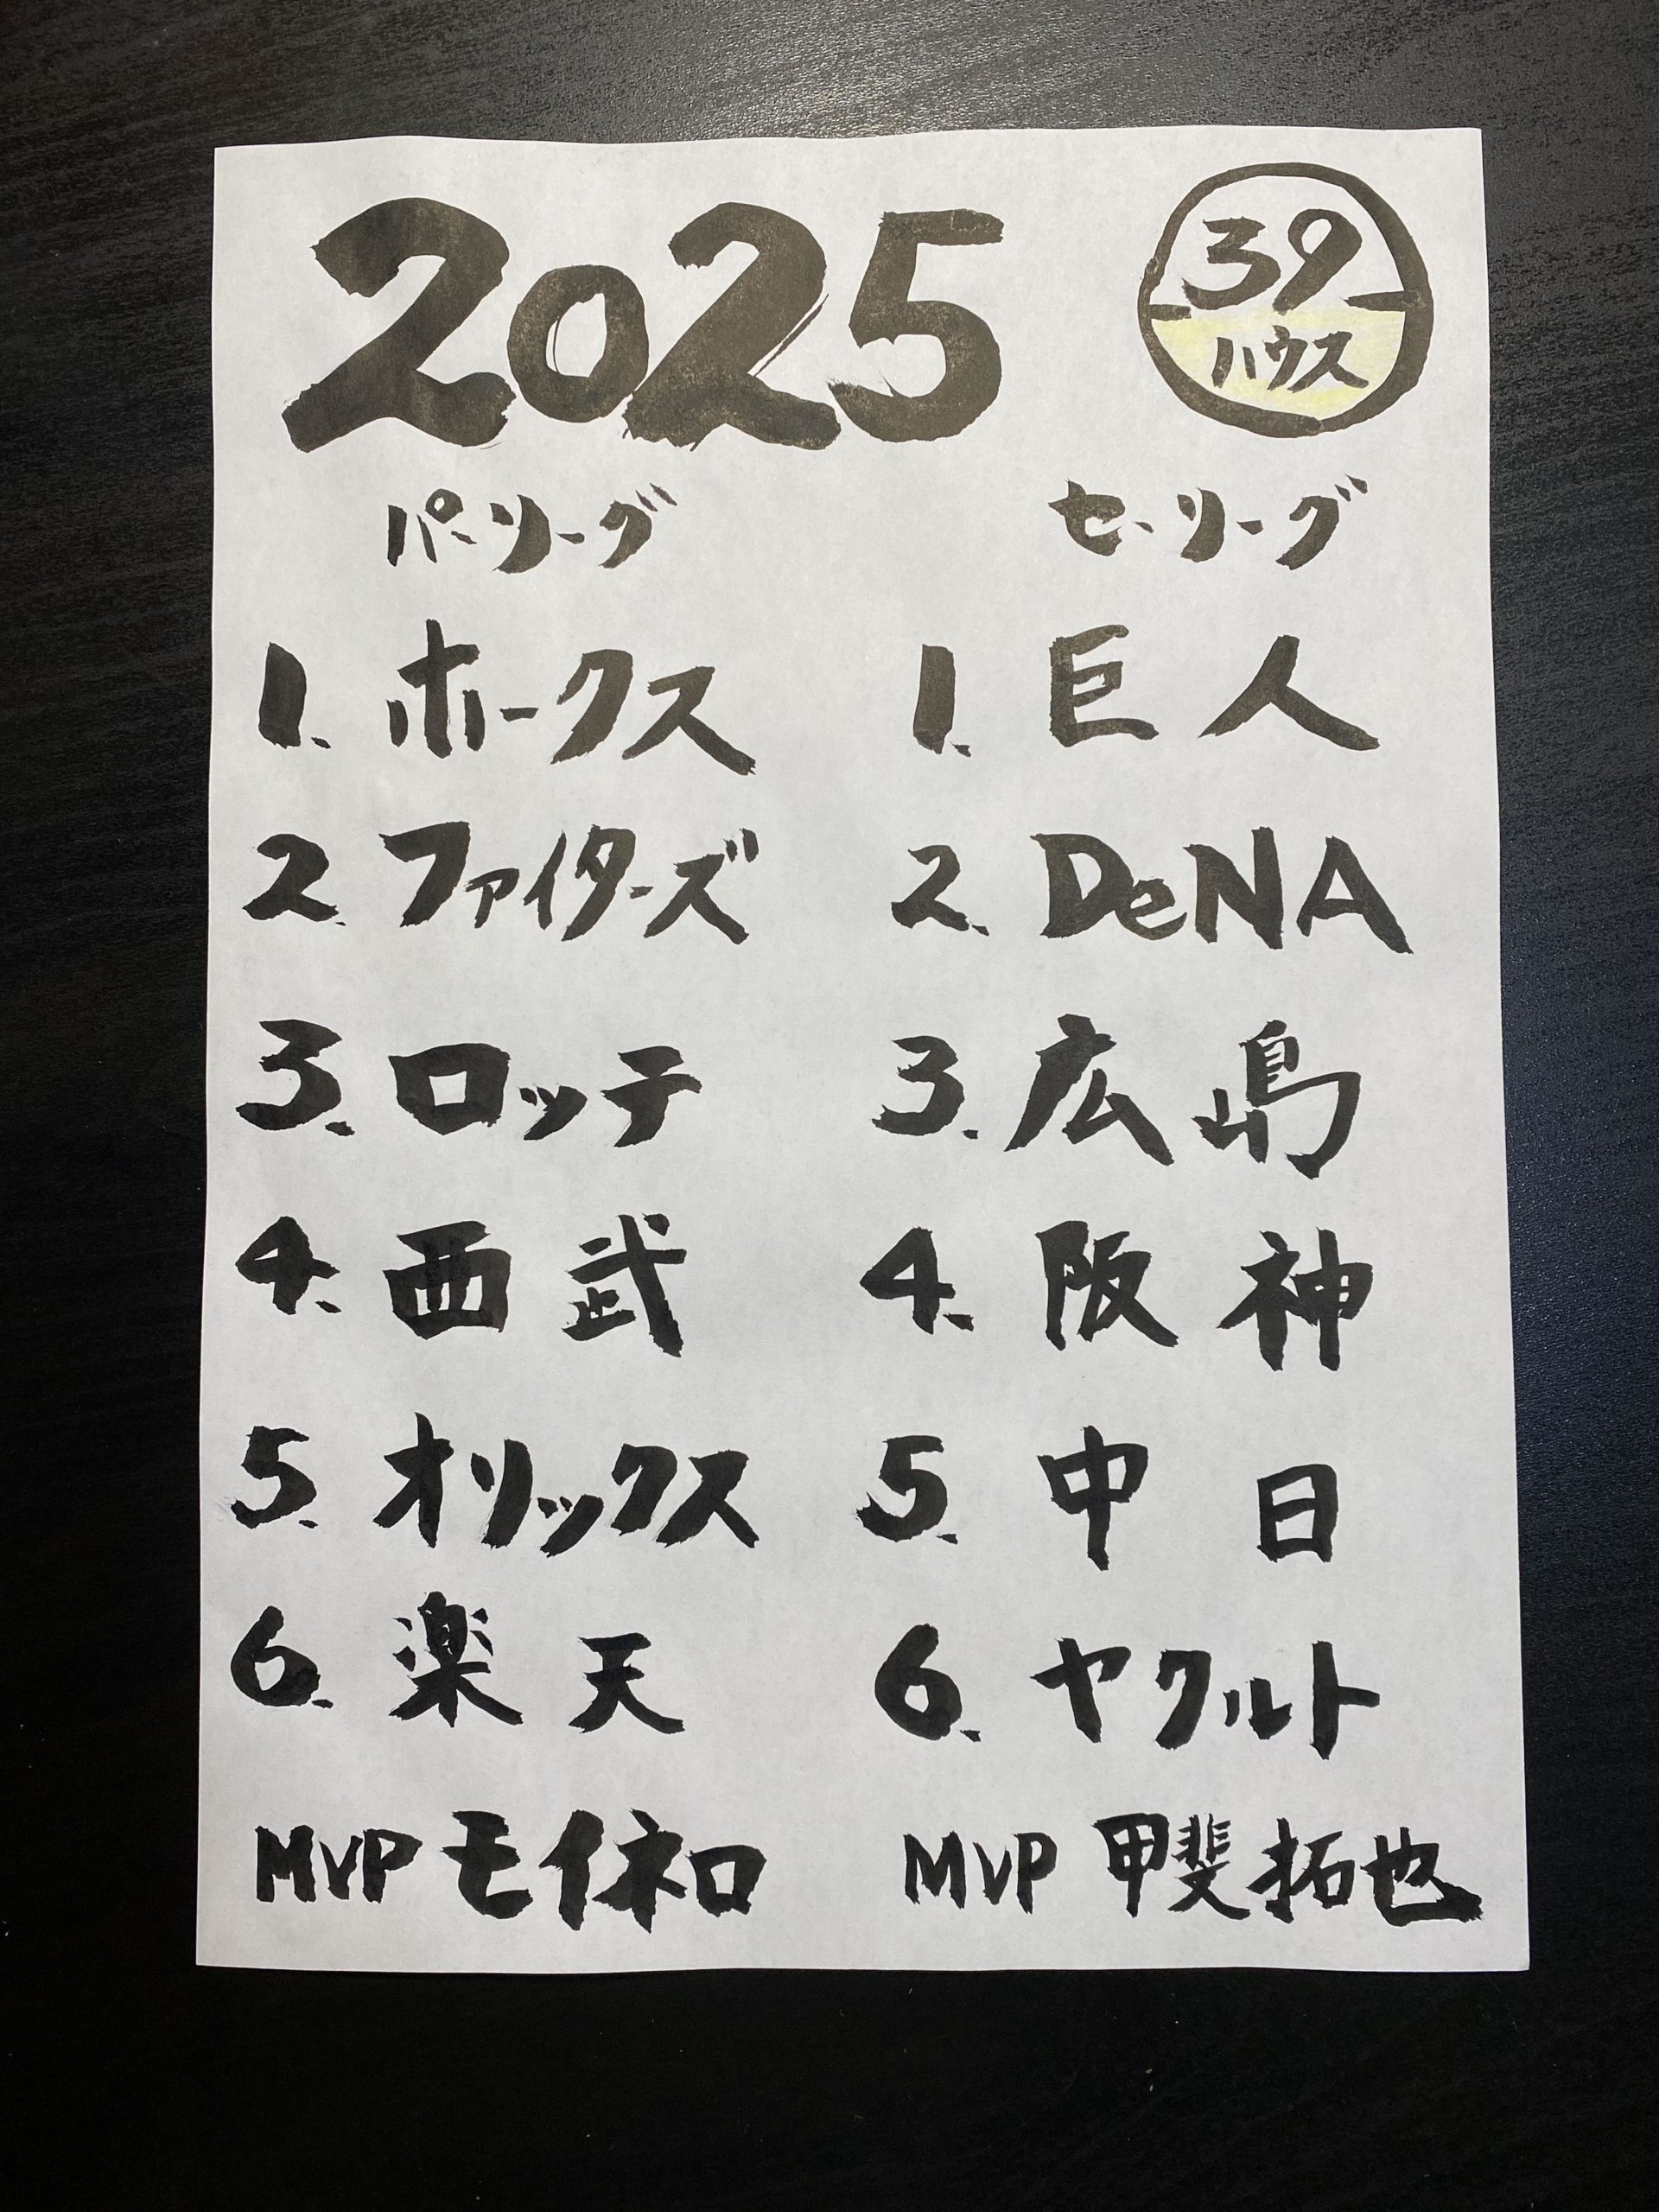 2025
39
ハウス
パ・リーグ
1. ホークス
2. ファイターズ
3. ロッテ
4. 西武
5. オリックス
6. 楽天
MVP モイネロ
セ・リーグ
1. 巨人
2. DeNA
3. 広島
4. 阪神
5. 中日
6. ヤクルト
MVP 甲斐拓也